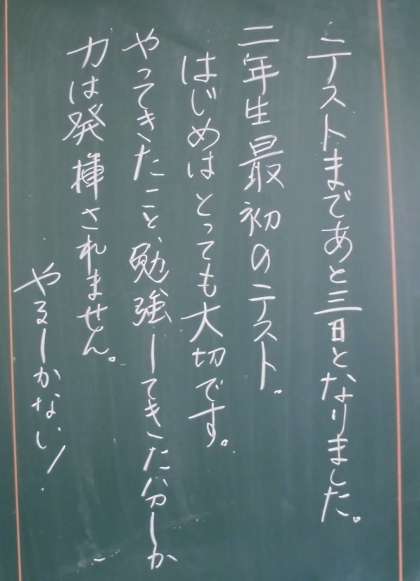 テストまであと三日となりました。
二年生最初のテスト。
はじめはとっても大切です。
やってきたこと、勉強してきた分しか
力は発揮されません。
やるしかない!